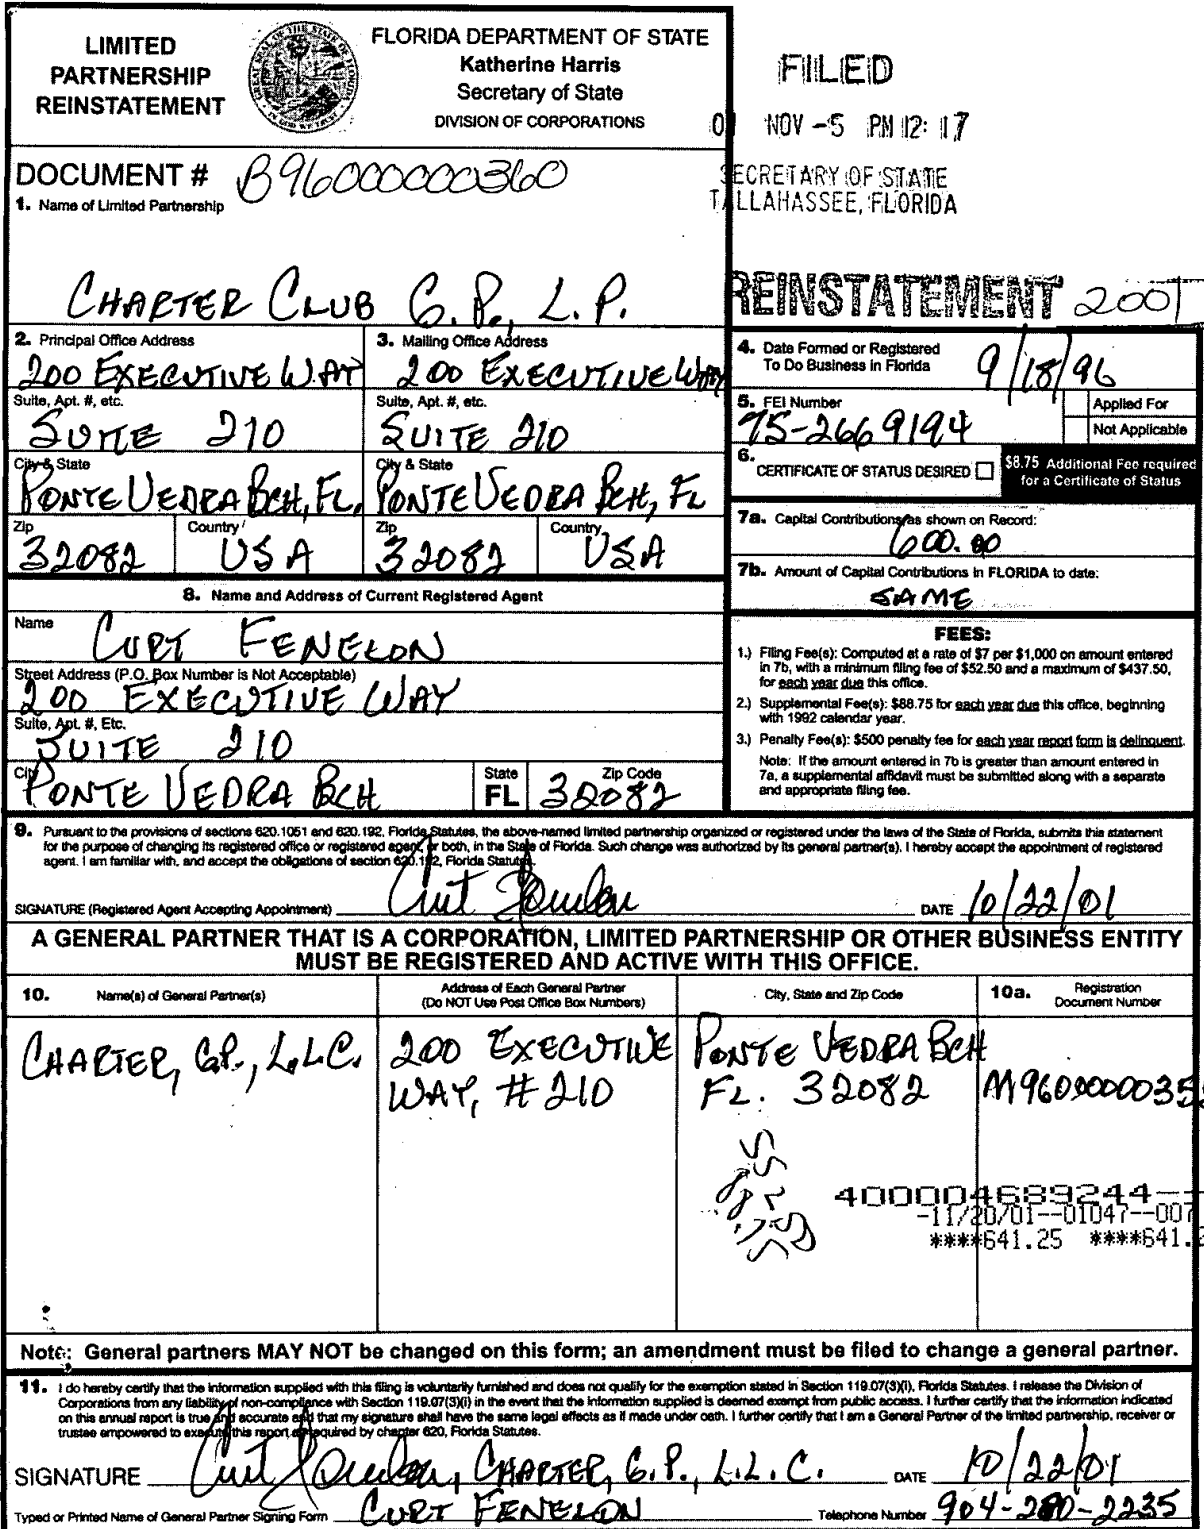 LIMITED
PARTNERSHIP
REINSTATEMENT
FLORIDA DEPARTMENT OF STATE
Katherine Harris
Secretary of State
DIVISION OF CORPORATIONS
FILED
NOV -5 PM 12: 17
SECRETARY OF STATE
TALLAHASSEE, FLORIDA
DOCUMENT # B96000000360
1. Name of Limited Partnership
CHARTER CLUB G.P., L.P.
REINSTATEMENT 2001
2. Principal Office Address
200 EXECUTIVE WAY
3. Mailing Office Address
200 EXECUTIVE WAY
Suite, Apt. #, etc.
SUITE 210
Suite, Apt. #, etc.
SUITE 210
City & State
PONTE VEDRA BCH, FL.
City & State
PONTE VEDRA BCH, FL
Zip
32082
Country
USA
Zip
32082
Country
USA
4. Date Formed or Registered
To Do Business in Florida
9/18/96
5. FEI Number
75-2669194
Applied For
Not Applicable
6.
CERTIFICATE OF STATUS DESIRED
$8.75 Additional Fee required
for a Certificate of Status
7a. Capital Contributions as shown on Record:
600.00
7b. Amount of Capital Contributions in FLORIDA to date:
SAME
8. Name and Address of Current Registered Agent
Name
CURT FENELON
Street Address (P.O. Box Number is Not Acceptable)
200 EXECUTIVE WAY
Suite, Apt. #, Etc.
SUITE 210
City
PONTE VEDRA BCH
State
FL
Zip Code
32082
FEES:
1.) Filing Fee(s): Computed at a rate of $7 per $1,000 on amount entered
in 7b, with a minimum filing fee of $52.50 and a maximum of $437.50,
for each year due this office.
2.) Supplemental Fee(s): $88.75 for each year due this office, beginning
with 1992 calendar year.
3.) Penalty Fee(s): $500 penalty fee for each year report form is delinquent.
Note: If the amount entered in 7b is greater than amount entered in
7a, a supplemental affidavit must be submitted along with a separate
and appropriate filing fee.
9. Pursuant to the provisions of sections 620.1051 and 620.192, Florida Statutes, the above-named limited partnership organized or registered under the laws of the State of Florida, submits this statement
for the purpose of changing its registered office or registered agent, or both, in the State of Florida. Such change was authorized by its general partner(s). I hereby accept the appointment of registered
agent. I am familiar with, and accept the obligations of section 620.192, Florida Statutes.
SIGNATURE (Registered Agent Accepting Appointment) Curt Fenelon DATE 10/22/01
A GENERAL PARTNER THAT IS A CORPORATION, LIMITED PARTNERSHIP OR OTHER BUSINESS ENTITY
MUST BE REGISTERED AND ACTIVE WITH THIS OFFICE.
10. Name(s) of General Partner(s)
Address of Each General Partner
(Do NOT Use Post Office Box Numbers)
City, State and Zip Code
10a. Registration
Document Number
CHARTER, G.P., L.L.C.
200 EXECUTIVE
WAY, #210
PONTE VEDRA BCH
FL. 32082
400004689244--
-11/20/01--01047--007
****641.25 ****641.2
Note: General partners MAY NOT be changed on this form; an amendment must be filed to change a general partner.
11. I do hereby certify that the information supplied with this filing is voluntarily furnished and does not qualify for the exemption stated in Section 119.07(3)(i), Florida Statutes. I release the Division of
Corporations from any liability of non-compliance with Section 119.07(3)(i) in the event that the information supplied is deemed exempt from public access. I further certify that the information indicated
on this annual report is true and accurate and that my signature shall have the same legal effects as if made under oath. I further certify that I am a General Partner of the limited partnership, receiver or
trustee empowered to execute this report as required by chapter 620, Florida Statutes.
SIGNATURE Curt Fenelon, CHARTER, G.P., L.L.C. DATE 10/22/01
Typed or Printed Name of General Partner Signing Form CURT FENELON Telephone Number 904-280-2235